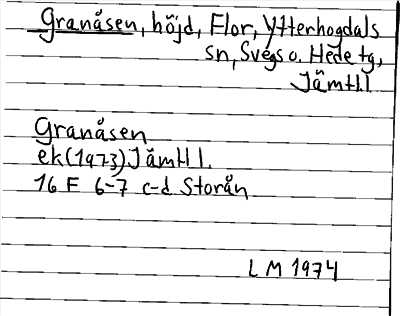 Granåsen, höjd, Flor, Ytterhogdals
sn, Svegs o. Hede tg,
Jämtl.l
Granåsen
ek(1973)Jämtl l.
16 F 6-7 c-d Storån
LM 1974